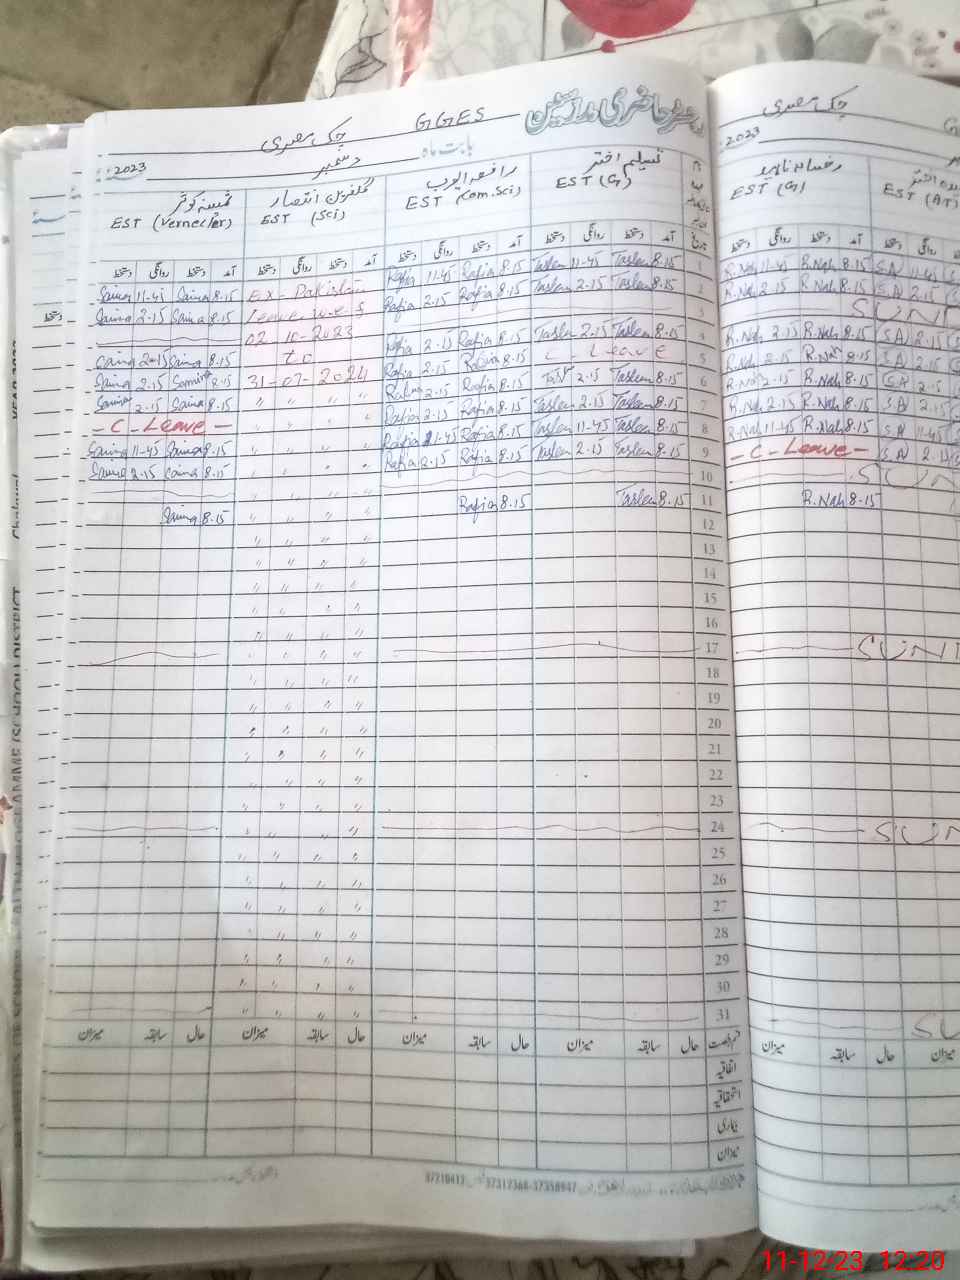 رجسٹر حاضری مدرسین
GGES
چک مصری
بابت ماہ
دسمبر
2023
تسلیم اختر
EST (G)
رافعہ ایوب
EST (Com.Sci)
گلفرین انتصار
EST (Sci)
ثمینہ کوثر
EST (Vernecler)
تاریخ آمد دستخط روانگی دستخط آمد دستخط روانگی دستخط آمد دستخط روانگی دستخط آمد دستخط روانگی دستخط
1 8.15 Taslem 11-45 Taslem 8.15 Rafia 11-45 Rafia EX - Pakistan 8.15 Saima 11-45 Saima
2 8.15 Taslem 2.15 Taslem 8.15 Rafia 2.15 Rafia Leave w.e.f. 8.15 Saima 2.15 Saima
3 02-10-2023
4 8.15 Taslem 2.15 Taslem 8.15 Rafia 2.15 Rafia to 8.15 Saima 2.15 Saima
5 C - Leave 8.15 Rafia 2.15 Rafia 31-07-2024 8.15 2.15
6 8.15 Taslem 2.15 8.15 Rafia 2.15 Rafia 8.15 Saima 2.15
7 8.15 Taslem 2.15 Taslem 8.15 Rafia 2.15 Rafia - C - Leave -
8 8.15 Taslem 11-45 Taslem 8.15 Rafia 11-45 Rafia 8.15 Saima 11-45 Saima
9 8.15 Taslem 2.15 Taslem 8.15 Rafia 2.15 Rafia 8.15 Saima 2.15 Saima
10
11 8.15 Taslem 8.15 Rafia 8.15 Saima
12
13
14
15
16
17
18
19
20
21
22
23
24
25
26
27
28
29
30
31
قسم رخصت حال سابقہ میزان حال سابقہ میزان حال سابقہ میزان حال سابقہ میزان
اتفاقیہ
استحقاقیہ
بیماری
میزان
چک مصری
2023
رخسانہ ناہید
EST (G)
EST (AT)
آمد دستخط روانگی دستخط
8.15 R.Nah 11-45 R.Nah 11-45 S.A
8.15 R.Nah 2.15 R.Nah 2.15 S.A
SUN
8.15 R.Nah 2.15 R.Nah 2.15 S.A
8.15 R.Nah 2.15 R.Nah 2.15 S.A
8.15 R.Nah 2.15 R.Nah 2.15 S.A
8.15 R.Nah 2.15 R.Nah 2.15 S.A
8.15 R.Nah 11-45 R.Nah 11-45 S.A
- C - Leave - 2.15 S.A
SUN
8.15 R.Nah
SUN
SUN
SU
حال سابقہ میزان
11-12-23 12:20